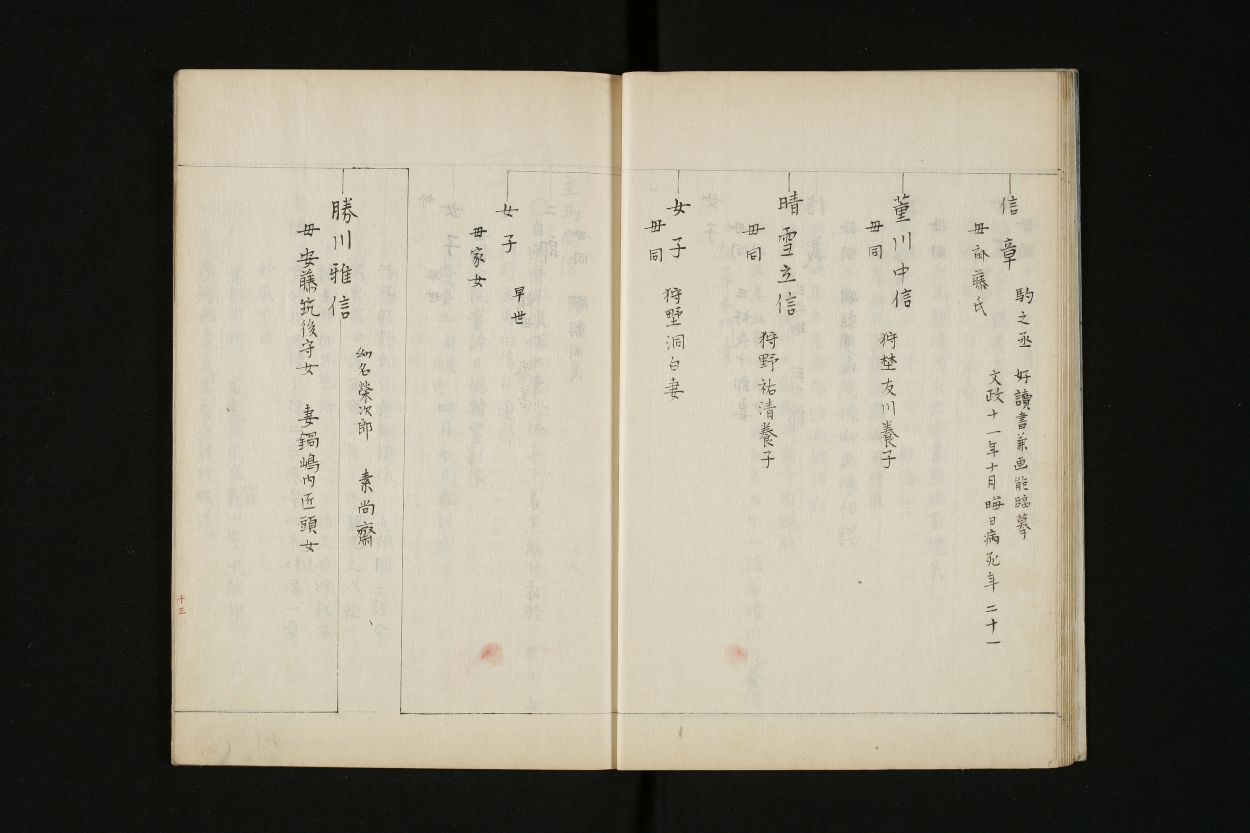 信章
駒之丞　好讀書兼画能臨摹
文政十一年十月晦日病死年二十一
毋斎藤氏
菫川中信
狩埜友川養子
毋同
晴雪立信
狩野祐清養子
毋同
女子
狩埜洞白妻
毋同
女子
早世
毋家女
勝川雅信
幼名榮次郎　素尚齋
毋安藤筑後守女　妻鍋嶋内匠頭女
十三